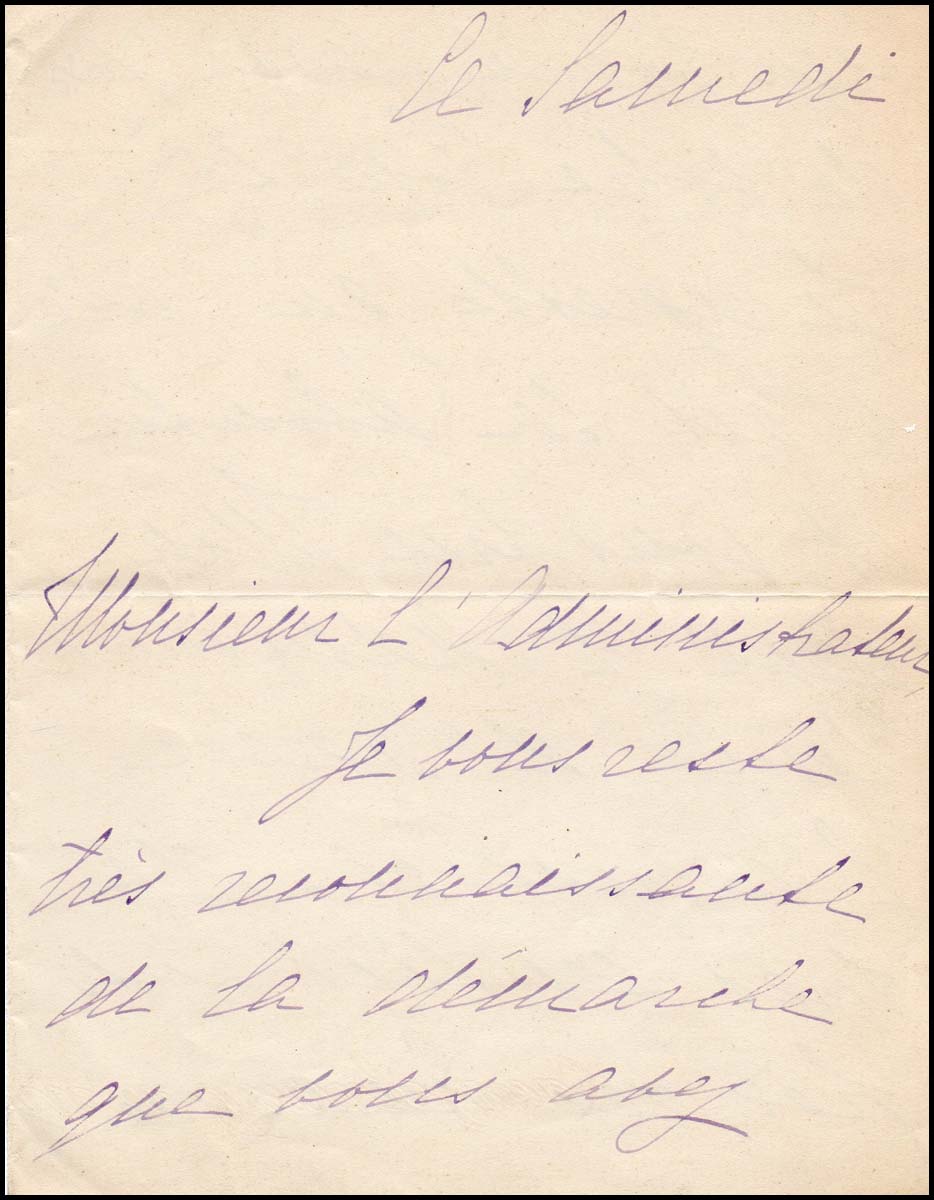 Ce Samedi
Monsieur L'Administrateur,
Je vous reste
très reconnaissante
de la démarche
que vous avez